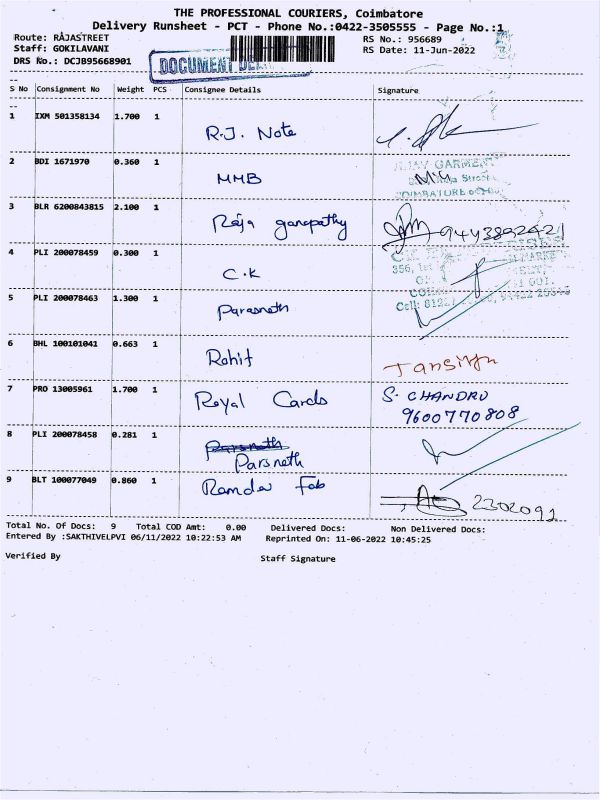 THE PROFESSIONAL COURIERS, Coimbatore
Delivery Runsheet - PCT - Phone No.:0422-3505555 - Page No.:1
Route: RAJASTREET RS No.: 956689
Staff: GOKILAVANI RS Date: 11-Jun-2022
DRS No.: DCJB95668901
DOCUMENT
S No Consignment No Weight PCS Consignee Details Signature
1 IXM 501358134 1.700 1 R.J. Note
2 BDI 1671970 0.360 1 MMB
GARMENT
3 BLR 6200843815 2.100 1 Raja ganapathy 9443892421
4 PLI 200078459 0.300 1 C.K
356, 1st
5 PLI 200078463 1.300 1 Parasnath
6 BHL 100101041 0.663 1 Rohit
7 PRO 13005961 1.700 1 Royal Cards S. CHANDRU
9600770808
8 PLI 200078458 0.281 1 Parsnath
Parsnath
9 BLT 100077049 0.860 1 Ramdev Fab 2302091
Total No. Of Docs: 9 Total COD Amt: 0.00 Delivered Docs: Non Delivered Docs:
Entered By :SAKTHIVELPVI 06/11/2022 10:22:53 AM Reprinted On: 11-06-2022 10:45:25
Verified By Staff Signature